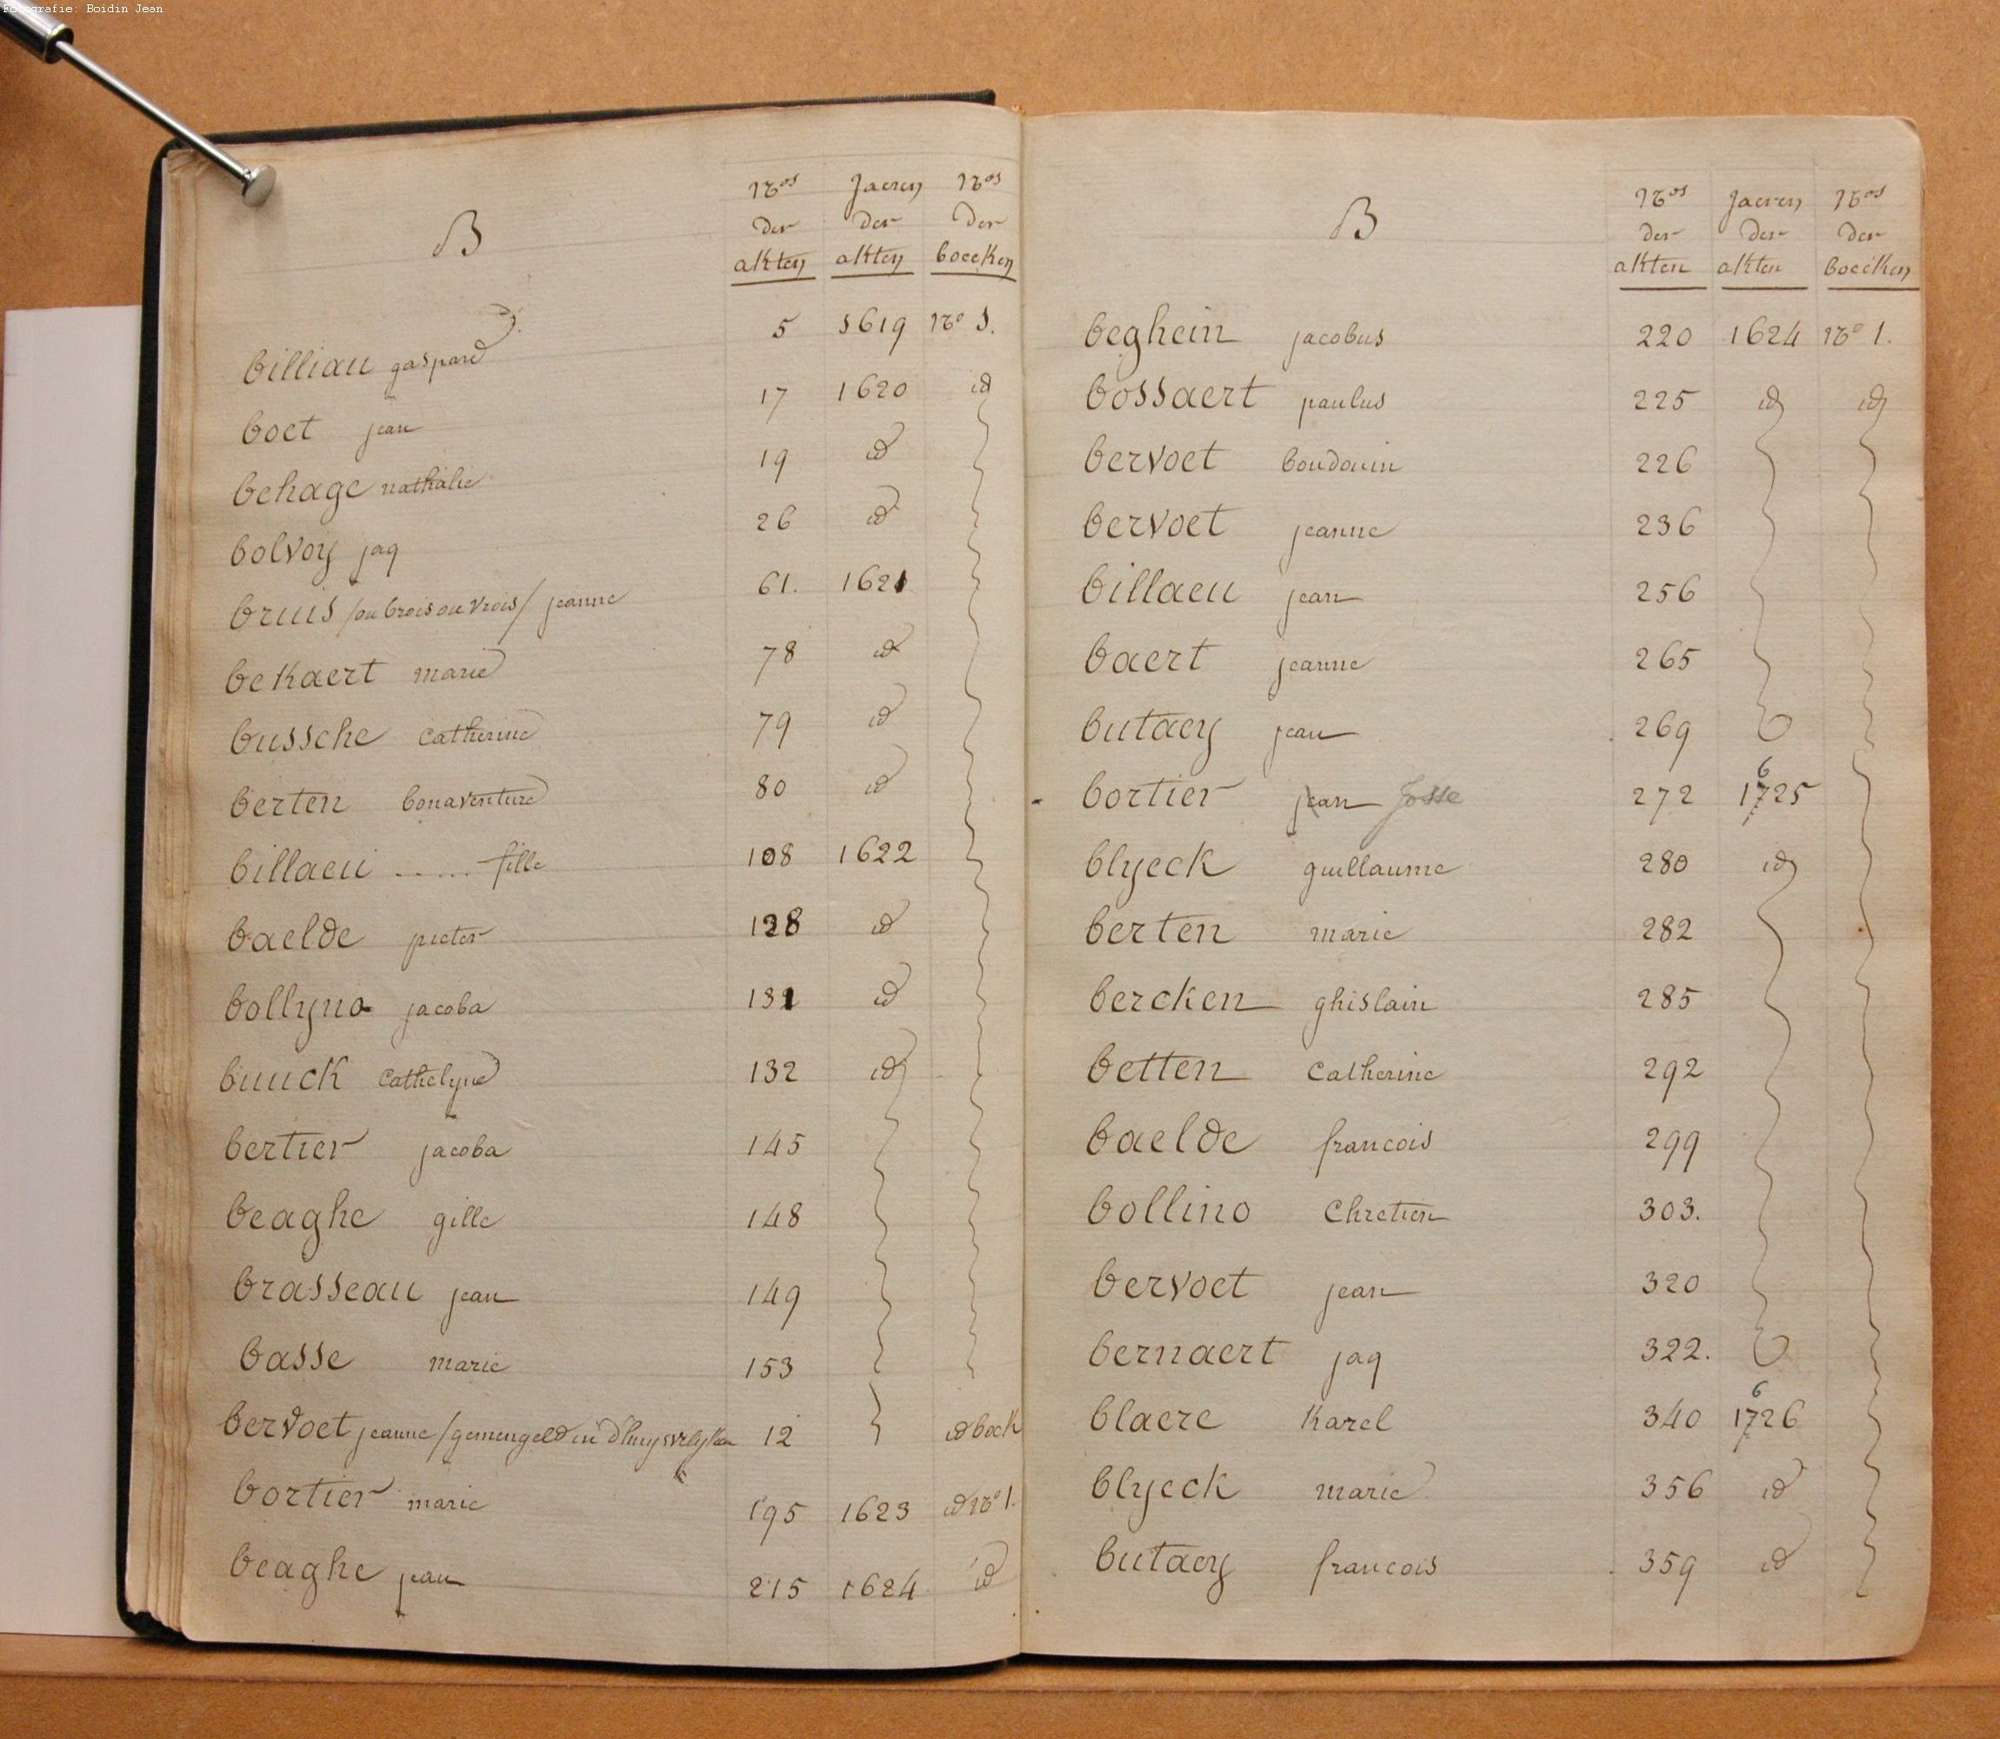 Fotografie: Boidin Jean
B
Nos Jaeren Nos
der der der
akten akten boecken
billiau gaspard 5 1619 No 1.
boet jean 17 1620 id
behage nathalie 19 id
bolvoy jaq 26 id
bruis /ou brois ou vrois/ jeanne 61. 1621
bekaert marie 78 id
bussche catherine 79 id
berten bonaventure 80 id
billaeu ..... fille 108 1622
baelde pieter 128 id
bollyno jacoba 131 id
buuck cathelyne 132 id
bertier jacoba 145
beaghe gille 148
brasseau jean 149
basse marie 153
bervoet jeanne /gemengeld in d'huysvelyken 12 id boek
bortier marie 195 1623 id No 1.
beaghe jean 215 1624 id
B
Nos Jaeren Nos
der der der
akten akten boecken
beghein jacobus 220 1624 No 1.
bossaert paulus 225 id id
bervoet boudouin 226
bervoet jeanne 236
billaeu jean 256
baert jeanne 265
butaey jean 269
bortier jean Josse 272 1725 6
blyeck guillaume 280 id
berten marie 282
bercken ghislain 285
betten catherine 292
baelde francois 299
bollino chretien 303.
bervoet jean 320
bernaert jaq 322.
blaere karel 340 1726 6
blyeck marie 356 id
butaey francois 359 id